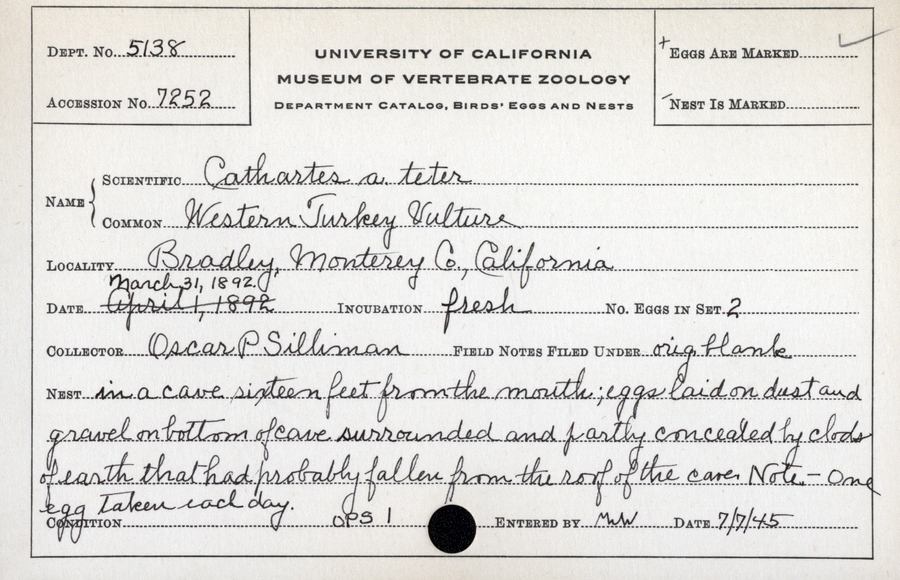 DEPT. No. 5138
ACCESSION No. 7252
UNIVERSITY OF CALIFORNIA
MUSEUM OF VERTEBRATE ZOOLOGY
DEPARTMENT CATALOG, BIRDS' EGGS AND NESTS
+ EGGS ARE MARKED ✓
- NEST IS MARKED
NAME { SCIENTIFIC Cathartes a. teter
COMMON Western Turkey Vulture
LOCALITY Bradley, Monterey Co., California
March 31, 1892.
DATE April 1, 1892 INCUBATION fresh No. EGGS IN SET 2
COLLECTOR Oscar P Silliman FIELD NOTES FILED UNDER orig. blank
NEST in a cave sixteen feet from the mouth; eggs laid on dust and
gravel on bottom of cave surrounded and partly concealed by clods
of earth that had probably fallen from the roof of the cave. Note. - One
egg taken each day.
CONDITION OPS 1 ENTERED BY MWW DATE 7/7/45